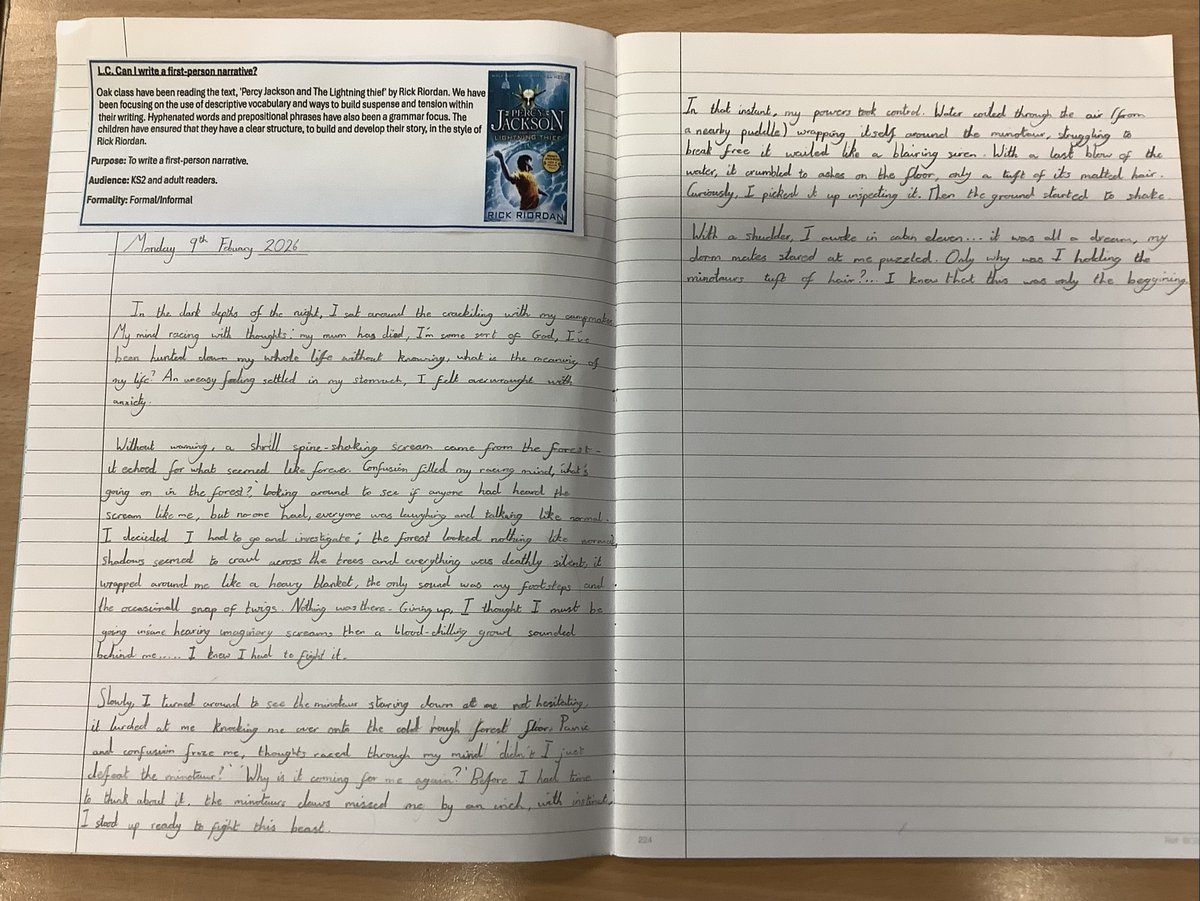 L.C. Can I write a first-person narrative?
Oak class have been reading the text, 'Percy Jackson and The Lightning thief' by Rick Riordan. We have
been focusing on the use of descriptive vocabulary and ways to build suspense and tension within
their writing. Hyphenated words and prepositional phrases have also been a grammar focus. The
children have ensured that they have a clear structure, to build and develop their story, in the style of
Rick Riordan.
Purpose: To write a first-person narrative.
Audience: KS2 and adult readers.
Formality: Formal/Informal
PERCY
JACKSON
LIGHTNING THIEF
RICK RIORDAN
Monday 9th Febuary 2026
In the dark depths of the night, I sat around the crackiling with my campmates.
My mind racing with thoughts: my mum has died, I'm some sort of God, I've
been hunted down my whole life without knowing, what is the meaning of
my life? An uneasy feeling settled in my stomach, I felt overwrought with
anxiety.
Without warning, a shrill spine-shaking scream came from the forest-
it echoed for what seemed like forever. Confusion filled my racing mind, 'what's
going on in the forest?' looking around to see if anyone had heard the
scream like me, but no-one had, everyone was laughing and talking like normal.
I decided I had to go and investigate; the forest looked nothing like normal,
shadows seemed to crawl across the trees and everything was deathly silent, it
wrapped around me like a heavy blanket, the only sound was my footsteps and
the occasionall snap of twigs. Nothing was there. Giving up, I thought I must be
going insane hearing imaginary screams then a blood-chilling growl sounded
behind me..... I knew I had to fight it.
Slowly, I turned around to see the minotaur staring down at me not hesitating,
it lurched at me knocking me over onto the cold rough forest floor, Panic
and confusion froze me, thoughts raced through my mind 'didn't I just
defeat the minotaur?' 'Why is it coming for me again?' Before I had time
to think about it, the minotaurs claws missed me by an inch, with instinct,
I stood up ready to fight this beast.
In that instant, my powers took control. Water coiled through the air (from
a nearby puddle) wrapping itself around the minotaur, struggling to
break free it wailed like a blairing siren. With a last blow of the
water, it crumbled to ashes on the floor, only a tuft of it's matted hair.
Curiously, I picked it up inspecting it. Then the ground started to shake
With a shudder, I awoke in cabin eleven... it was all a dream, my
dorm mates stared at me puzzled. Only why was I holding the
minotaurs tuft of hair?... I knew that this was only the beggining.
224